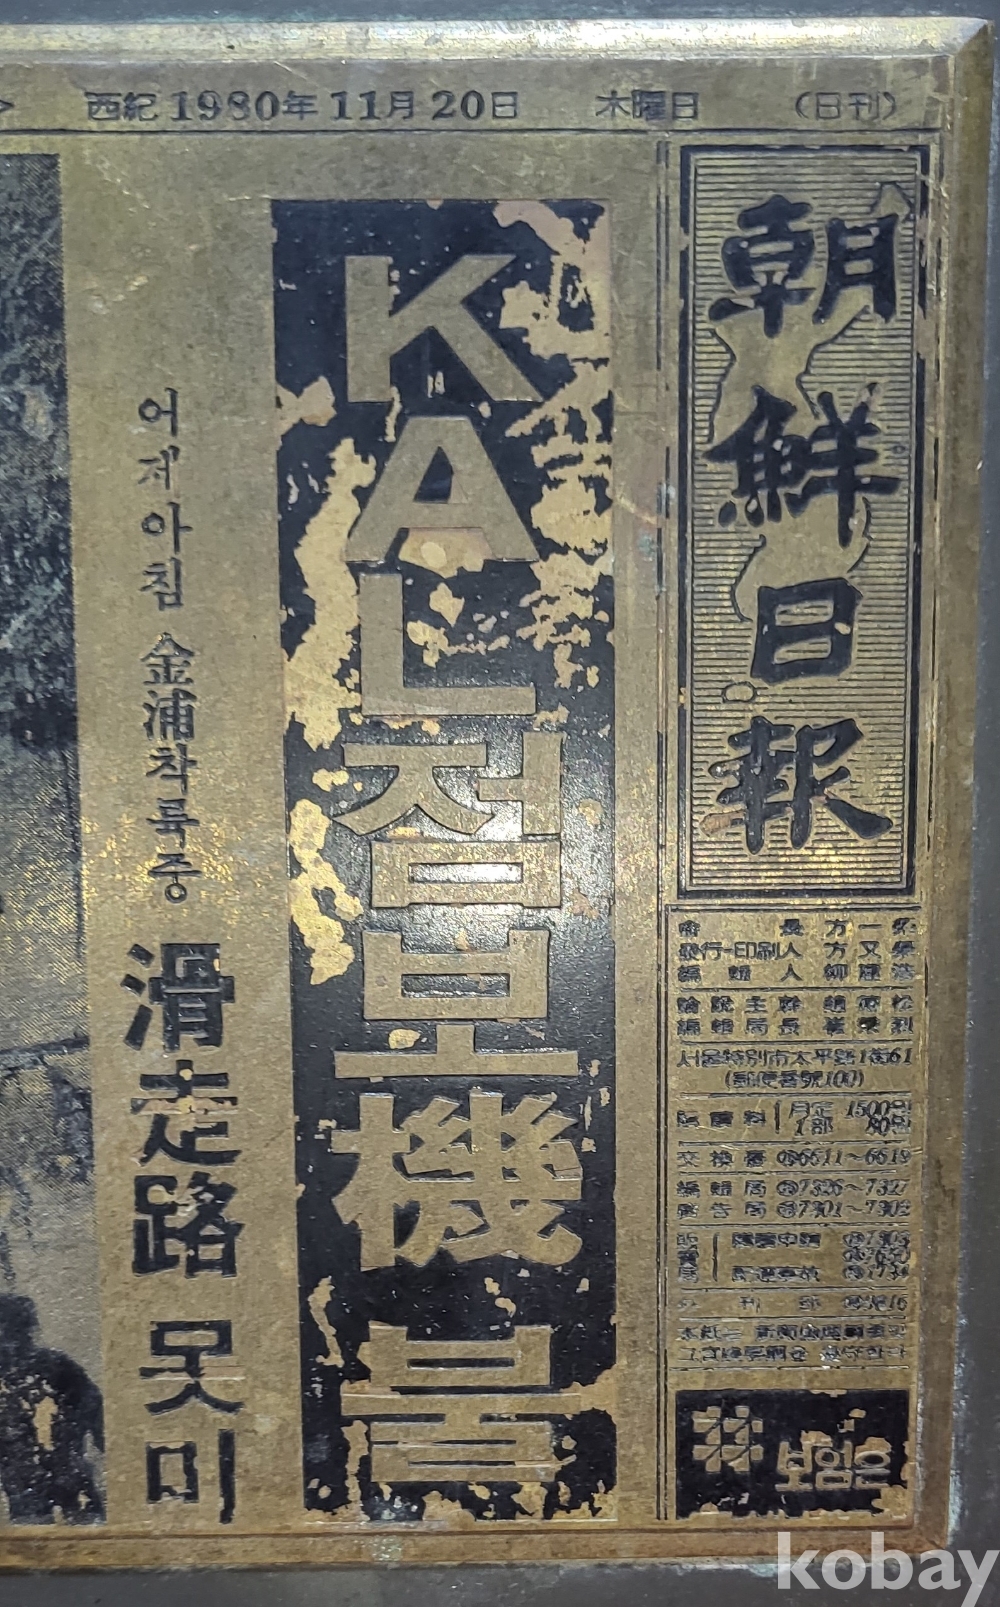 西紀 1980年 11月 20日 木曜日 (日刊)
朝鮮日報
KAL점보機 불
어제아침 金浦착륙중
滑走路 못미
長 方一榮
發行·印刷人 方又榮
編輯人 柳建浩
論說主幹 趙
編輯局長 崔
서울特別市太平路1街61
(郵便番號100)
購讀料 月定 1500원
1部 80원
交換臺 6611~6619
編輯局 7326~7327
廣告局 7301~7302
보임은
kobay